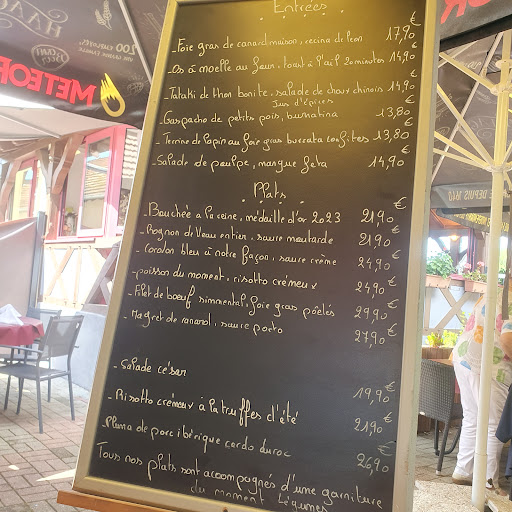 Entrées
- Foie gras de canard maison, cecina de leon 17,90 €
- Os à moelle au four, toast à l'ail 20 minutes 14,90
- Tataki de thon bonite, salade de choux chinois 14,90
Jus d'épices
- Gaspacho de petits pois, burratina 13,80
- Terrine de lapin au foie gras 13,80 €
- Salade de poulpe, mangue feta 14,90 €
Plats
- Bouchée à la reine, médaille d'or 2023 21,90 €
- Rognon de Veau entier, sauce moutarde 21,90 €
- Cordon bleu à notre façon, sauce crème 24,90 €
- poisson du moment, risotto crémeux 24,90 €
- Filet de boeuf simmental, foie gras poêlés 29,90 €
- Magret de canard, sauce porto 27,90 €
- Salade césar 19,90 €
- Risotto crémeux à la truffes d'été 21,90 €
- Pluma de porc ibérique cerdo duroc 26,90 €
Tous nos plats sont accompagnés d'une garniture
du moment Légumes
METEOR
DEPUIS 1640